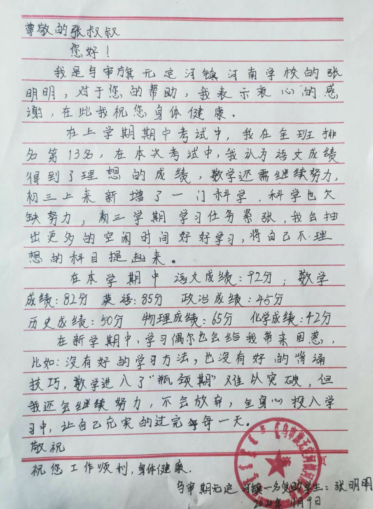 尊敬的张叔叔
您好!
我是乌审旗无定河镇河南学校的张
明明,对于您的帮助,我表示衷心的感
谢,在此我祝您身体健康。
在上学期期中考试中,我在全班排
名第13名,在本次考试中,我认为语文成绩
得到了理想的成绩,数学还需继续努力,
初三上来新增了一门科学,科学也欠
缺努力,初三学期学习任务紧张,我会抽
出更多的空闲时间好好学习,将自己不理
想的科目提起来。
在本学期中 语文成绩:92分,数学
成绩:82分 英语:85分 政治成绩:45分
历史成绩:50分 物理成绩:65分 化学成绩:42分
在新学期中,学习偶尔也会给我带来困惑,
比如:没有好的学习方法,也没有好的背诵
技巧,数学进入了“瓶颈期”难以突破,但
我还会继续努力,不会放弃,全身心投入学
习中,让自己充实的过完每每一天。
敬祝
祝您工作顺利,身体健康。
乌审旗无定 学生:张明明
月9日